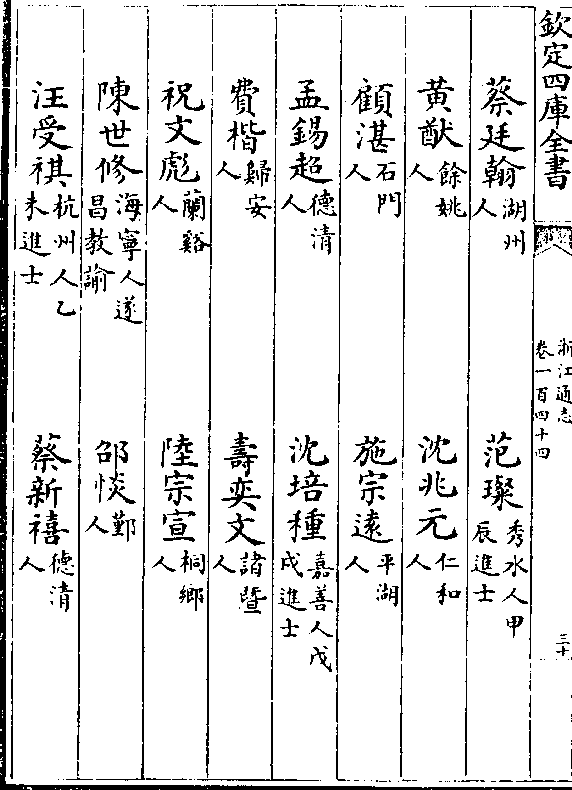 欽定四庫全書
浙江通志
卷一百四十四
三十
蔡廷翰湖州人 范璨秀水人甲辰進士
黃猷餘姚人 沈兆元仁和人
顧湛石門人 施宗遠平湖人
孟錫超德清人 沈培種嘉善人戊戌進士
費楷歸安人 壽奕文諸暨人
祝文彪蘭谿人 陸宗宣桐鄉人
陳世修海寧人遂昌教諭 邵惔鄞人
汪受祺杭州人乙未進士 蔡新禧德清人